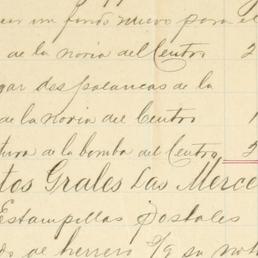 un fondo nuevo para el
de la noria del Centro 2
gar dos palancas de la
de la noria del Centro 1
tura de la bomba del Centro 2
tos Grales Las Merce
Estampillas postales
de herrero 2/9 su